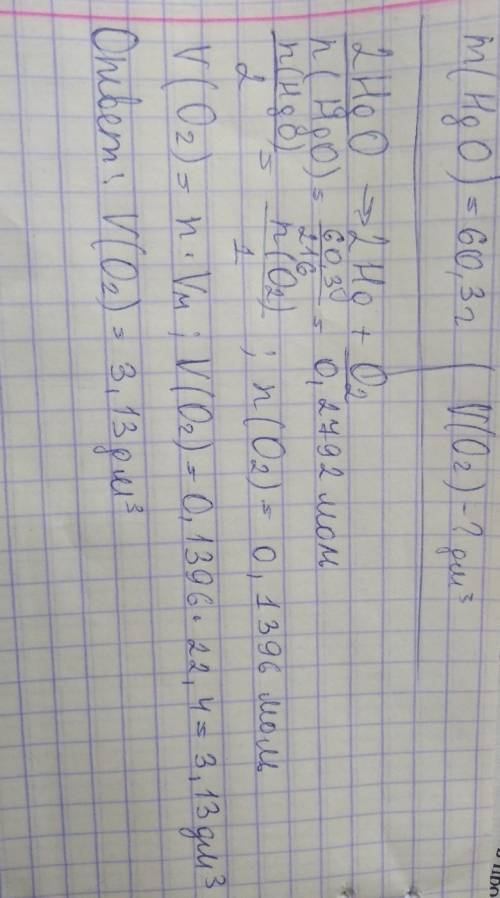 m(HgO) = 60,3г | V(O₂) - ? дм³
2HgO → 2Hg + O₂
n(HgO) = 60,3/216 = 0,2792 моль
n(HgO)/2 = n(O₂)/1 ; n(O₂) = 0,1396 моль
V(O₂) = n · Vм ; V(O₂) = 0,1396 · 22,4 = 3,13 дм³
Ответ: V(O₂) = 3,13 дм³